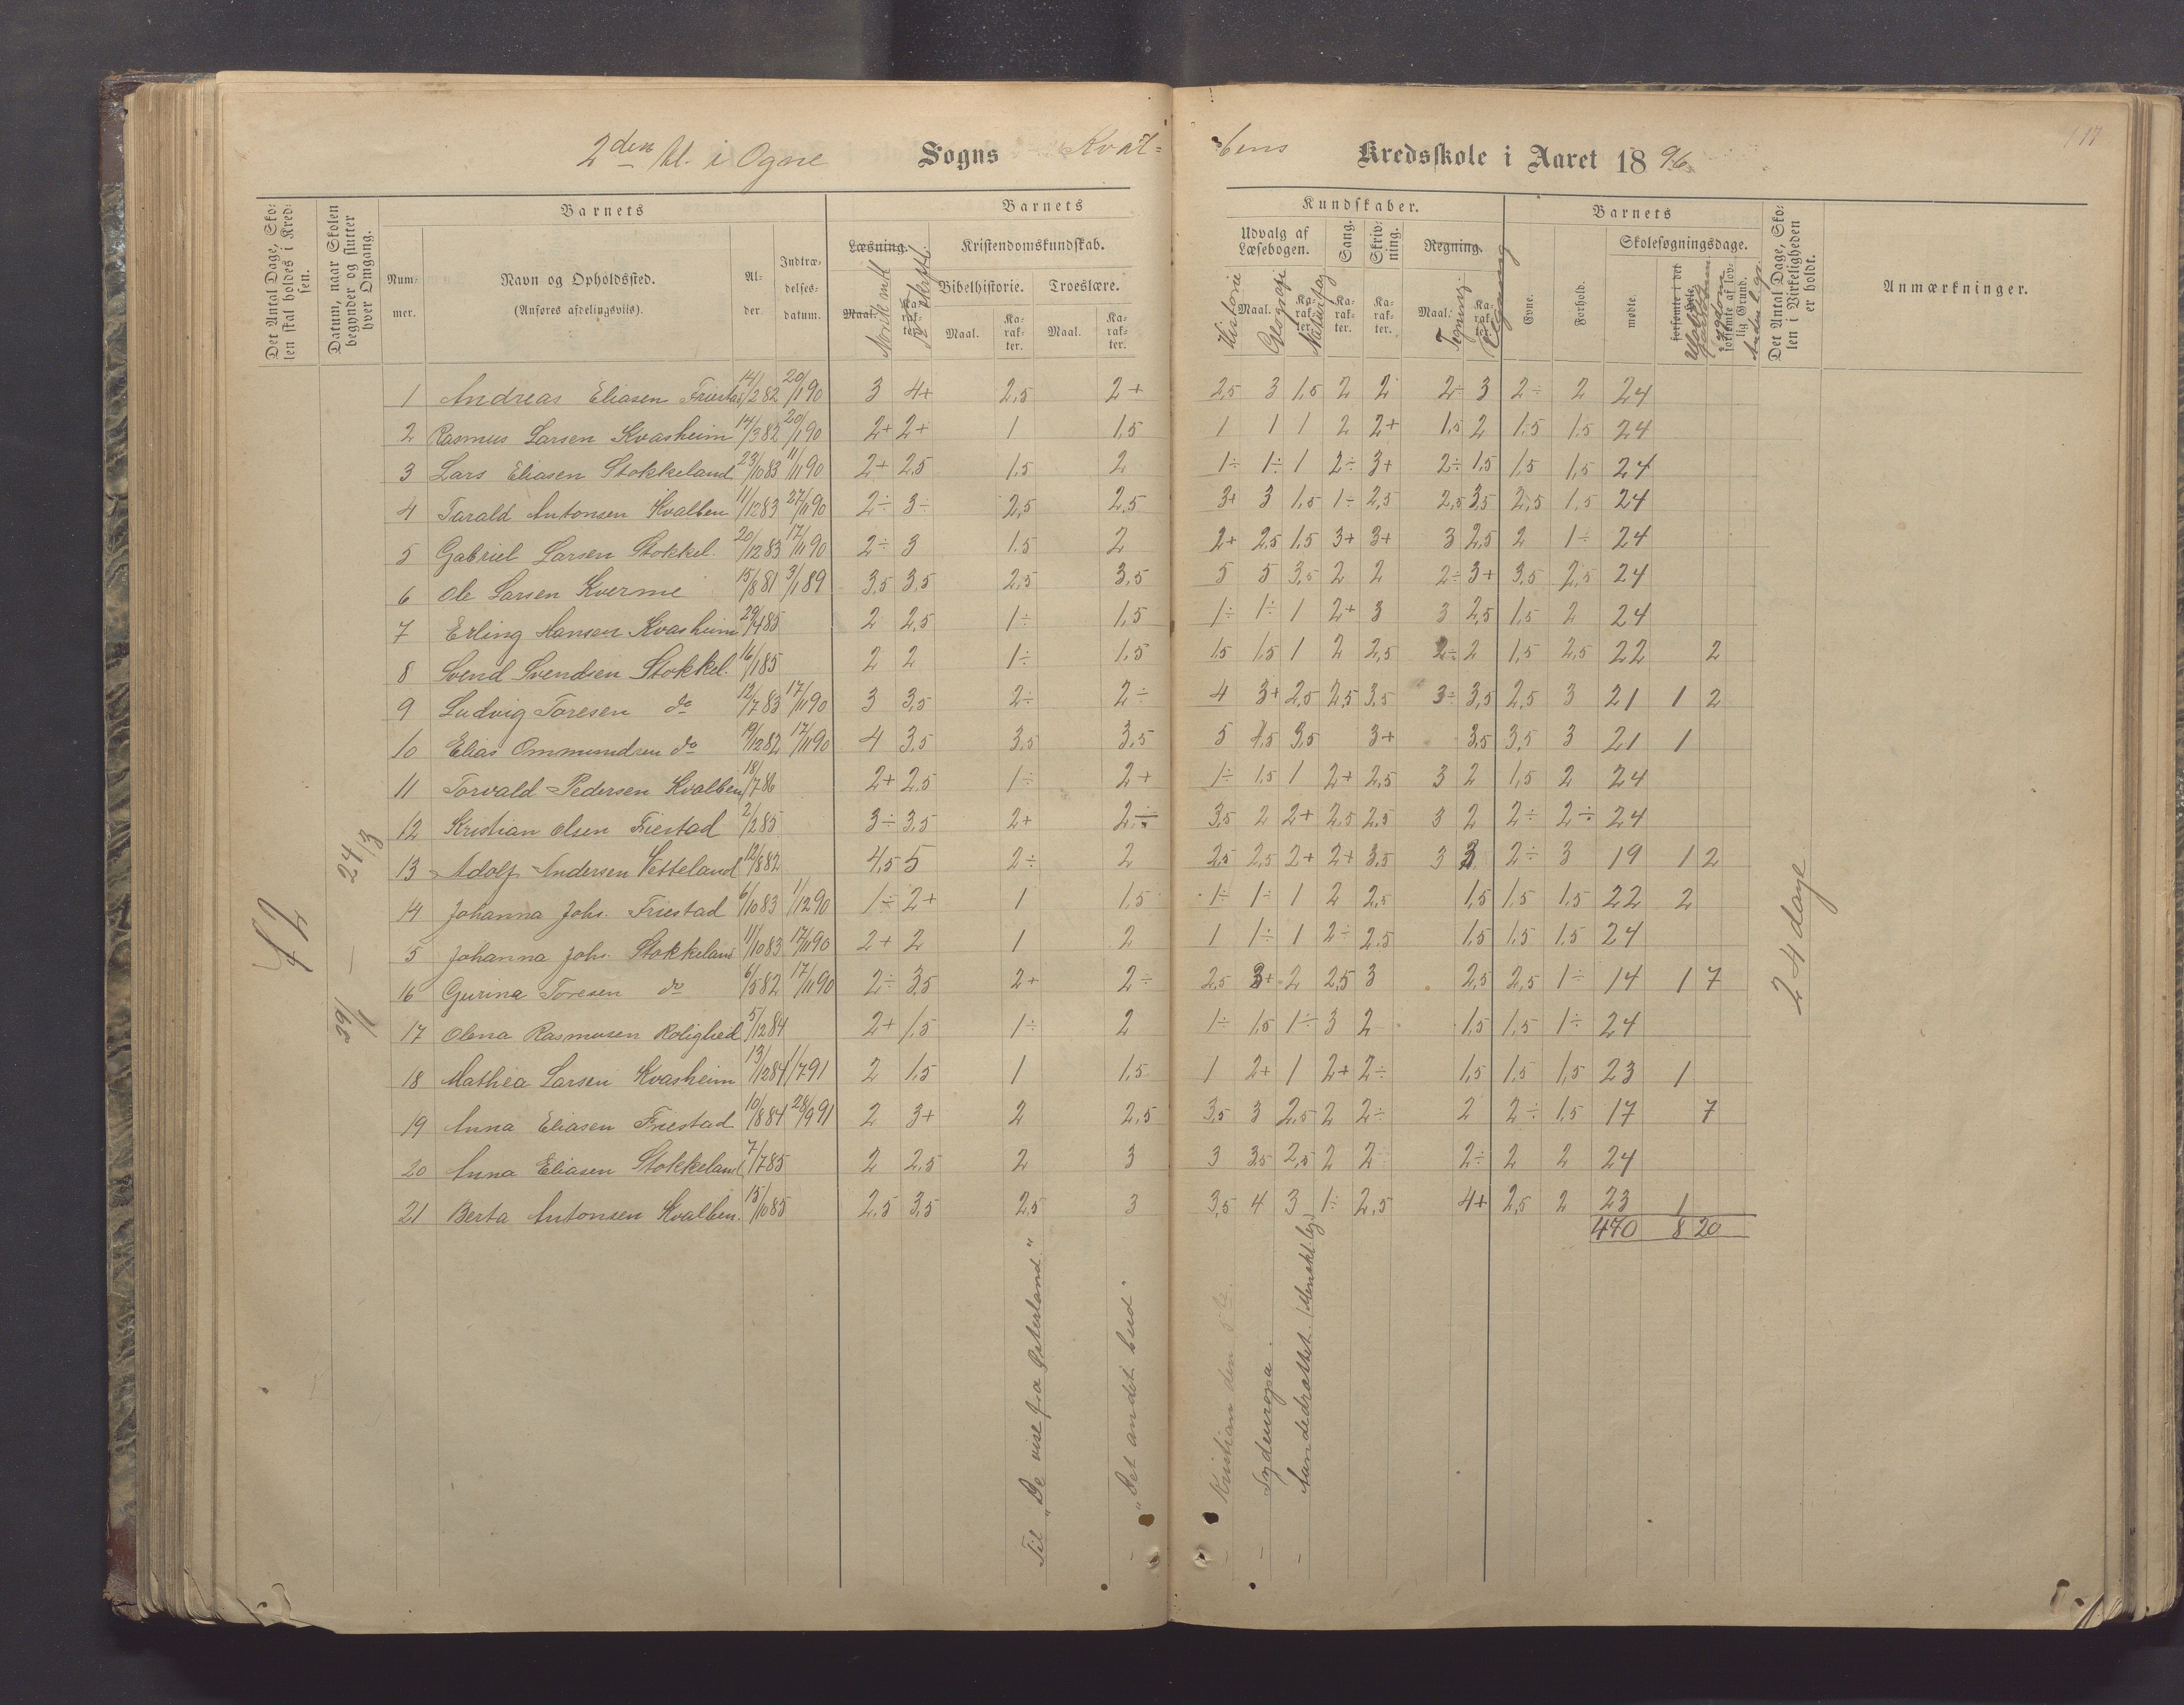 2den kl. i Ogne Sogns Kval=
bens Kredsskole i Aaret 1896 117
Det Antal Dage, Skolen skal holdes i Kredsen.
Datum, naar Skolen begynder og slutter hver Omgang.
Barnets
Nummer.
Navn og Opholdssted.
(Anføres afdelingsviis).
Alder
Indtrædelsesdatum.
Barnets
Læsning.
Maal. Karakter.
Kristendomskundskab.
Bibelhistorie. Troeslære.
Maal. Karakter. Maal. Karakter.
Kundskaber.
Udvalg af Læsebogen.
Historie Maal. Geografi Karakter. Naturfag
Sang. Karakter.
Skrivning. Karakter.
Regning.
Maal. Tegning. Karakter. Regning
Barnets
Evne.
Forhold.
Skolesøgningsdage.
mødte.
forsømte i det Hele.
Sygdom
forsømte af lovlig Grund.
Anden l. gr.
Det Antal Dage, Skolen i Virkeligheden er holdt.
Anmærkninger.
1 Andreas Eliasen Friestad 14/2 82 20/1 90 3 4+ 2,5 2+ 2,5 3 1,5 2 2 2÷ 3 2÷ 2 24
2 Rasmus Larsen Kvasheim 14/3 82 20/1 90 2+ 2+ 1 1,5 1 1 1 2 2+ 1,5 2 1,5 1,5 24
3 Lars Eliasen Stokkeland 23/10 83 11/11 90 2+ 2,5 1,5 2 1÷ 1÷ 1 2÷ 3+ 2÷ 1,5 1,5 1,5 24
4 Tarald Antonsen Kvalben 11/12 83 27/11 90 2÷ 3÷ 2,5 2,5 3+ 3 1,5 1÷ 2,5 2,5 3,5 2,5 1,5 24
5 Gabriel Larsen Stokkel. 20/12 83 17/11 90 2÷ 3 1,5 2 2+ 2,5 1,5 3+ 3+ 3 2,5 2 1÷ 24
6 Ole Larsen Kverme 15/8 81 3/1 89 3,5 3,5 2,5 3,5 5 5 3,5 2 2 2÷ 3+ 3,5 2,5 24
7 Erling Hansen Kvasheim 29/4 85 2 2,5 1÷ 1,5 1÷ 1÷ 1 2+ 3 3 2,5 1,5 2 24
8 Svend Svendsen Stokkel. 16/1 85 2 2 1÷ 1,5 1,5 1,5 1 2 2,5 2÷ 2 1,5 2,5 22 2
9 Ludvig Toresen do 12/7 83 17/11 90 3 3,5 2÷ 2÷ 4 3+ 2,5 2,5 3,5 3÷ 3,5 2,5 3 21 1 2
10 Elias Ommundsen do 19/12 82 17/11 90 4 3,5 3,5 3,5 5 4,5 3,5 3+ 3,5 3,5 3 21 1
11 Torvald Pedersen Kvalben 18/7 86 2+ 2,5 1÷ 2+ 1÷ 1,5 1 2+ 2,5 3 2 1,5 2 24
12 Kristian Olsen Friestad 2/2 85 3÷ 3,5 2+ 2÷ 3,5 2 2+ 2,5 2,5 3 2 2÷ 2÷ 24
13 Adolf Andersen Vetteland 12/8 82 4,5 5 2÷ 2 2,5 2,5 2+ 2+ 3,5 3 3 2÷ 3 19 1 2
14 Johanna Johs. Friestad 6/10 83 1/12 90 1÷ 2+ 1 1,5 1÷ 1÷ 1 2 2,5 1,5 1,5 1,5 22 2
5 Johanna Johs. Stokkeland 11/10 83 17/11 90 2+ 2 1 2 1 1÷ 1 2÷ 2,5 1,5 1,5 1,5 24
16 Gurina Toresen do 6/5 82 17/11 90 2÷ 3,5 2+ 2÷ 2,5 3+ 2 2,5 3 2,5 2,5 1÷ 14 1 7
17 Olena Rasmusen Rolighed 5/12 84 2+ 1,5 1÷ 2 1÷ 1,5 1÷ 3 2 1,5 1,5 1÷ 24
18 Mathea Larsen Kvasheim 13/12 84 1/7 91 2 1,5 1 1,5 1 2+ 1 2+ 2÷ 1,5 1,5 1,5 23 1
19 Anna Eliasen Friestad 10/8 84 28/9 91 2 3+ 2 2,5 3,5 3 2,5 2 2÷ 2 2÷ 1,5 17 7
20 Anna Eliasen Stokkeland 7/7 85 2 2,5 2 3 3 3,5 2,5 2 2 2÷ 2 2 24
21 Berta Antonsen Kvalben. 15/10 85 2,5 3,5 2,5 3 3,5 4 3 1÷ 2,5 4+ 2,5 2 23 1
470 8 20
— 24/3
24 dage
Til „De vise fra Østerland"
– „Det andet bud".
– Kristian den 5te.
– Sydeuropa.
– Aandedrættet.